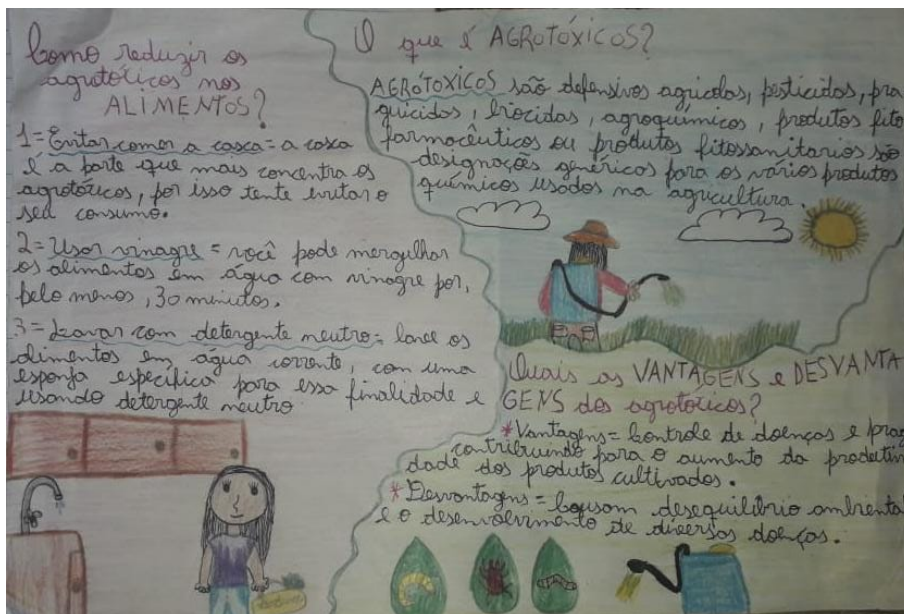 Como reduzir os
agrotóxicos nos
ALIMENTOS?
1= Evitar comer a casca= a casca
é a parte que mais concentra os
agrotóxicos, por isso tente evitar o
seu consumo.
2= Usar vinagre = você pode mergulhar
os alimentos em água com vinagre por,
pelo menos, 30 minutos.
3= Lavar com detergente neutro= lave os
alimentos em água corrente, com uma
esponja específica para essa finalidade e
usando detergente neutro
O que é AGROTÓXICOS?
AGRÓTOXICOS são defensivos agrícolas, pesticidas, pra
guicidas, biocidas, agroquímicos, produtos fito
farmacêuticos ou produtos fitossanitarios são
designações genéricos para os vários produtos
químicos usados na agricultura.
Quais as VANTAGENS e DESVANTA
GENS dos agrotóxicos?
*Vantagens= Controle de doenças e prag
contribuindo para o aumento da produtivi
dade dos produtos cultivados.
*Desvantagens= Causam desequilíbrio ambiental
e o desenvolvimento de diversas doenças.